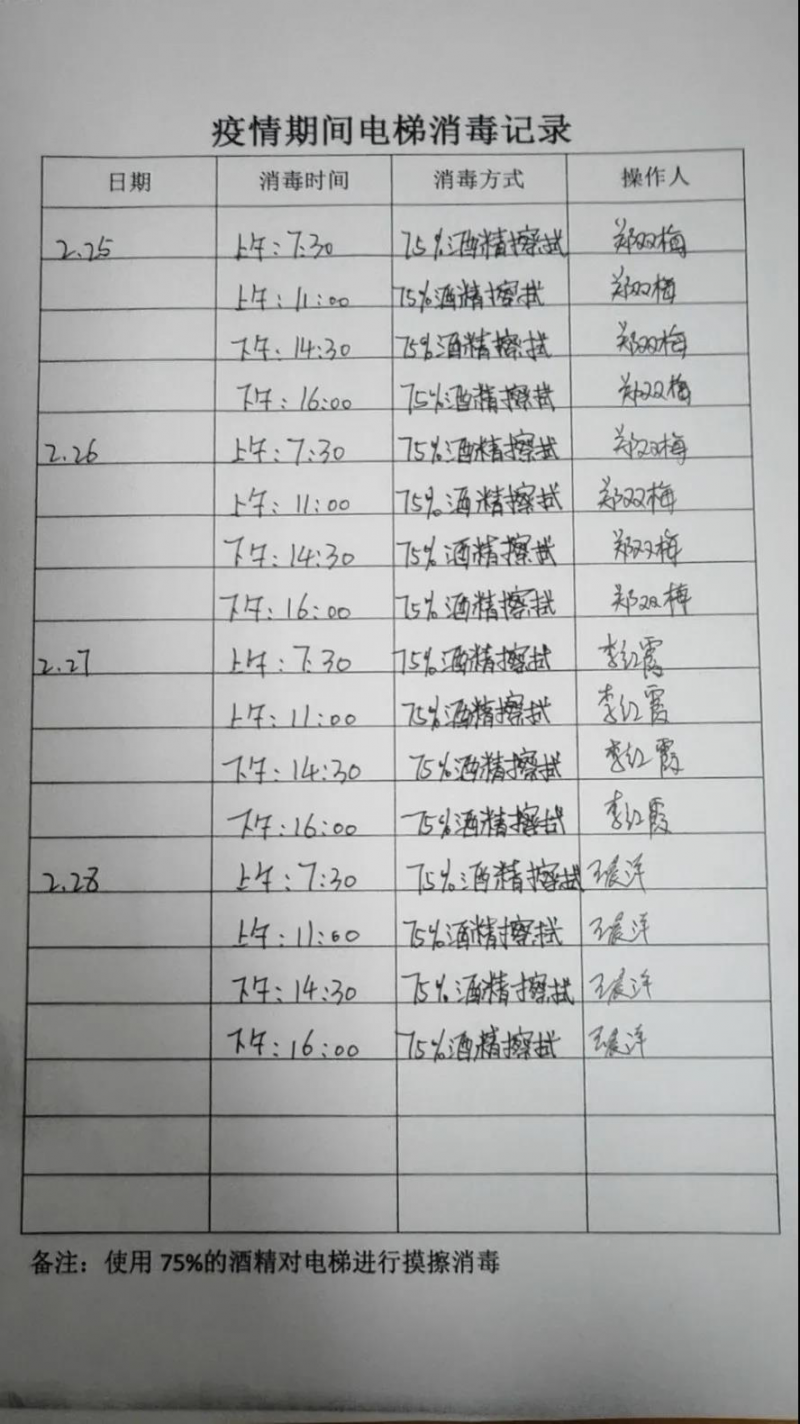 疫情期间电梯消毒记录
日期 消毒时间 消毒方式 操作人
2.25 上午:7:30 75%酒精擦拭 郑双梅
上午:11:00 75%酒精擦拭 郑双梅
下午:14:30 75%酒精擦拭 郑双梅
下午:16:00 75%酒精擦拭 郑双梅
2.26 上午:7:30 75%酒精擦拭 郑双梅
上午:11:00 75%酒精擦拭 郑双梅
下午:14:30 75%酒精擦拭 郑双梅
下午:16:00 75%酒精擦拭 郑双梅
2.27 上午:7:30 75%酒精擦拭 李红霞
上午:11:00 75%酒精擦拭 李红霞
下午:14:30 75%酒精擦拭 李红霞
下午:16:00 75%酒精擦拭 李红霞
2.28 上午:7:30 75%酒精擦拭 王晨洋
上午:11:00 75%酒精擦拭 王晨洋
下午:14:30 75%酒精擦拭 王晨洋
下午:16:00 75%酒精擦拭 王晨洋
备注：使用 75%的酒精对电梯进行摸擦消毒